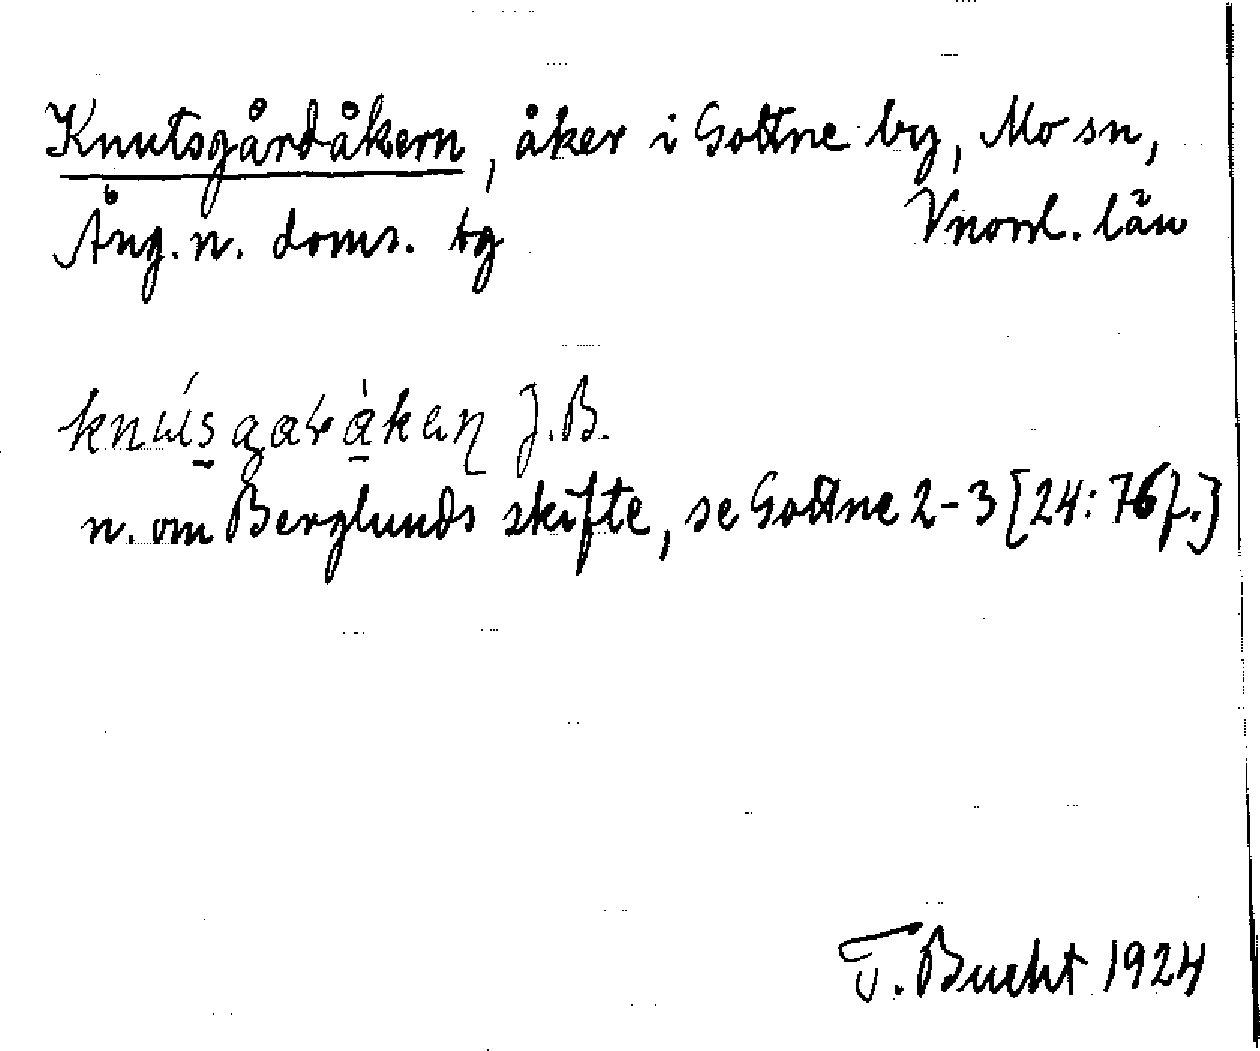 Knutsgårdåkern, åker i Gottne by, Mo sn,
Ång. n. doms. tg Vnorrl. län
J.B.
n. om Berglunds skifte, se Gottne 2-3 [24: 76f.]
T. Bucht 1924